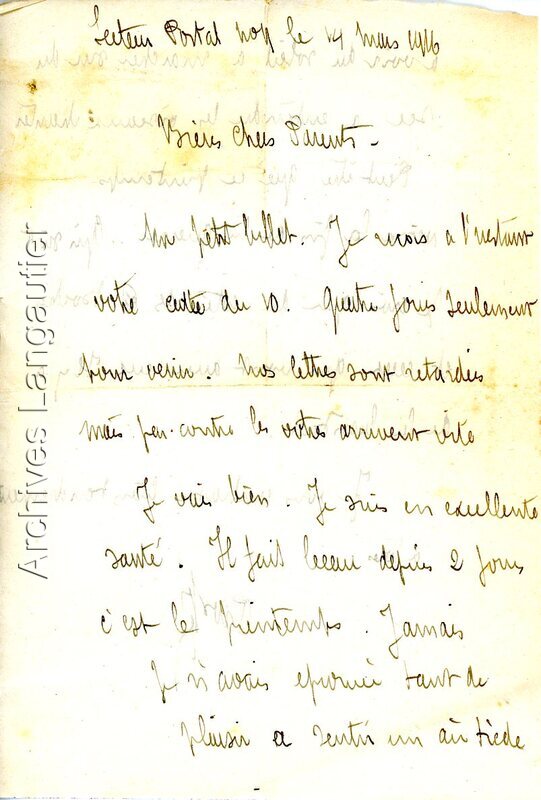 Secteur Postal le 14 mars 1916
Biens chers Parents -
Un petit billet. Je reçois a l'instant
votre cartee du 10. Quatre jours seulement
pour venir. Nos lettres sont retardées
mais par contre les votres arrivent vite
Je vais bien. Je suis en excellente
santé. Il fait beau depuis 2 jours
c'est le printemps. Jamais
Je n'avais eprouvé tant de
plaisir a sentir un air tiède
Archives Langautier